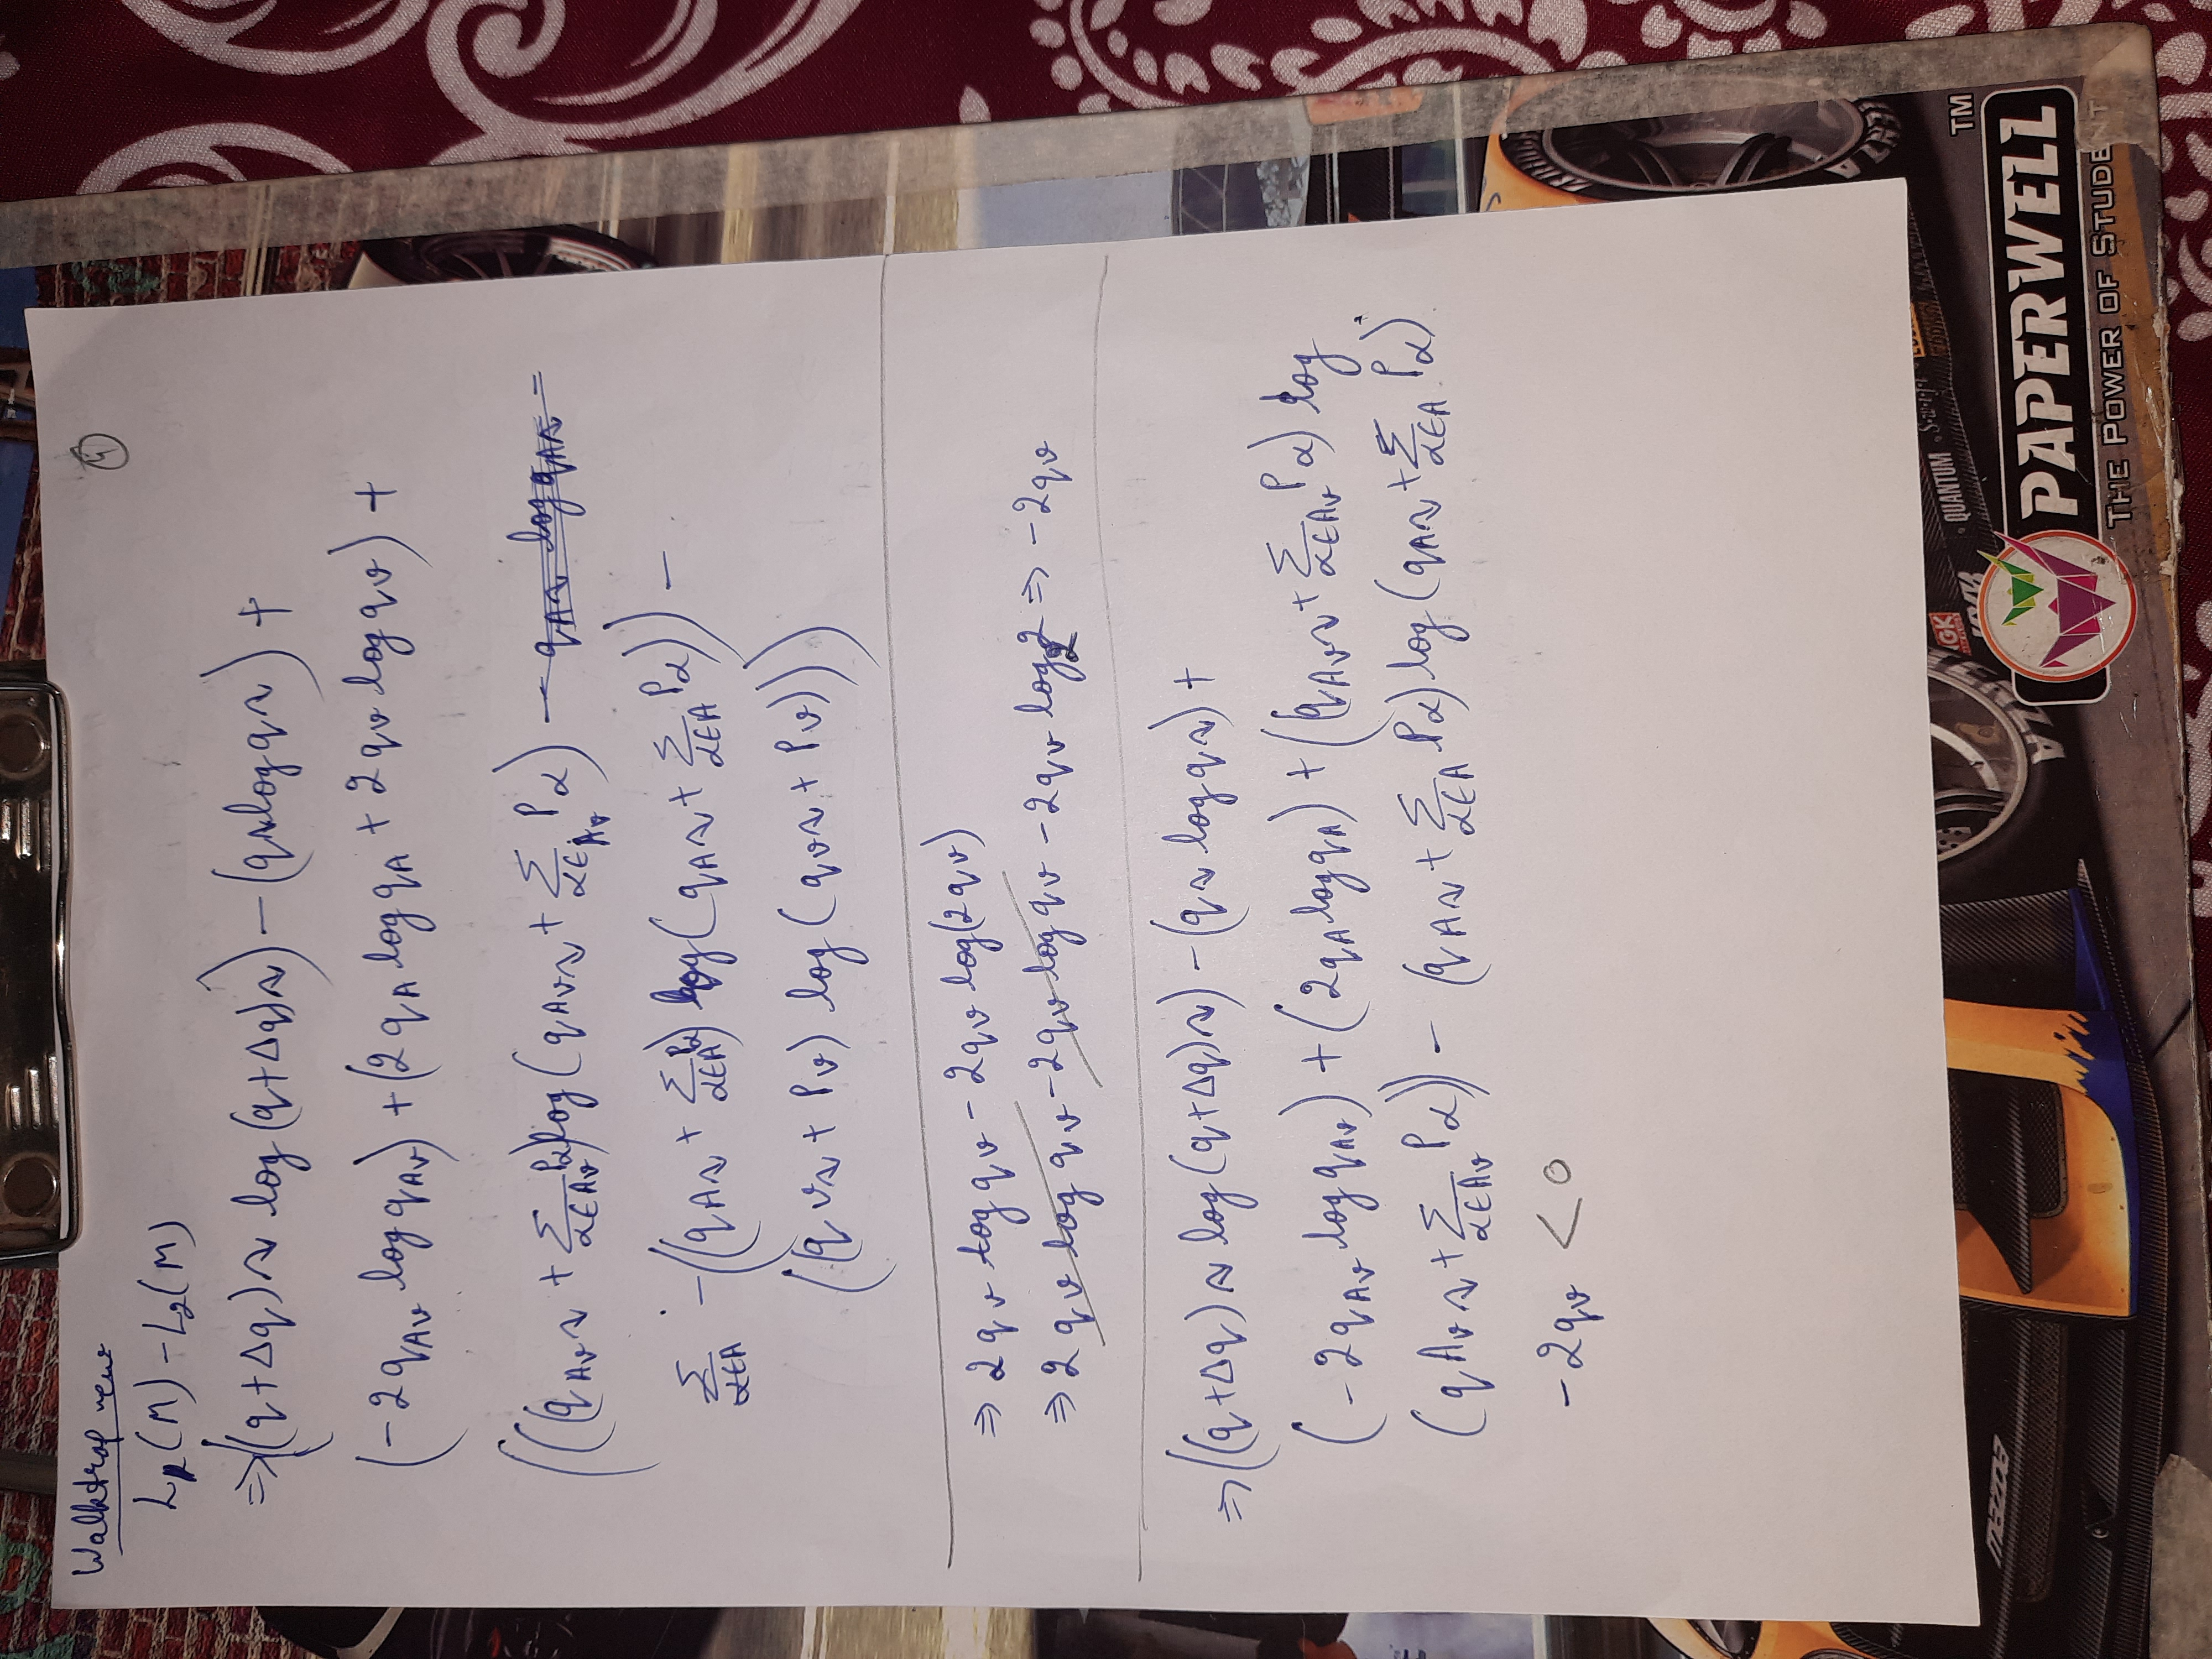 Walktrap new
4
L₁(M) - L₂(M)
⇒ ((q+Δq)↷ log (q+Δq)↷) - (q↷ log q↷) +
(-2q_{Av} log q_{Av}) + (2q_A log q_A + 2q_v log q_v) +
(((q_{Av↷} + Σ_{α∈Av} P_α) log (q_{Av↷} + Σ_{α∈Av} P_α) - q_{A↷} log q_{A↷} -
Σ_{α∈A} - ((q_{A↷} + Σ_{α∈A} P_α) log (q_{A↷} + Σ_{α∈A} P_α)) -
((q_{v↷} + P_v) log (q_{v↷} + P_v)))
⇒ 2q_v log q_v - 2q_v log(2q_v)
⇒ 2q_v log q_v - 2q_v log q_v - 2q_v log₂2 ⇒ -2q_v
⇒ ((q+Δq)↷ log (q+Δq)↷) - (q↷ log q↷) +
(-2q_{Av} log q_{Av}) + (2q_A log q_A) + ((q_{Av↷} + Σ_{α∈Av} P_α) log
(q_{Av↷} + Σ_{α∈Av} P_α)) - (q_{A↷} + Σ_{α∈A} P_α) log (q_{A↷} + Σ_{α∈A} P_α)
-2q_v < 0
mazda
GK
QUANTUM
TM
PAPERWELL
THE POWER OF STUDENT